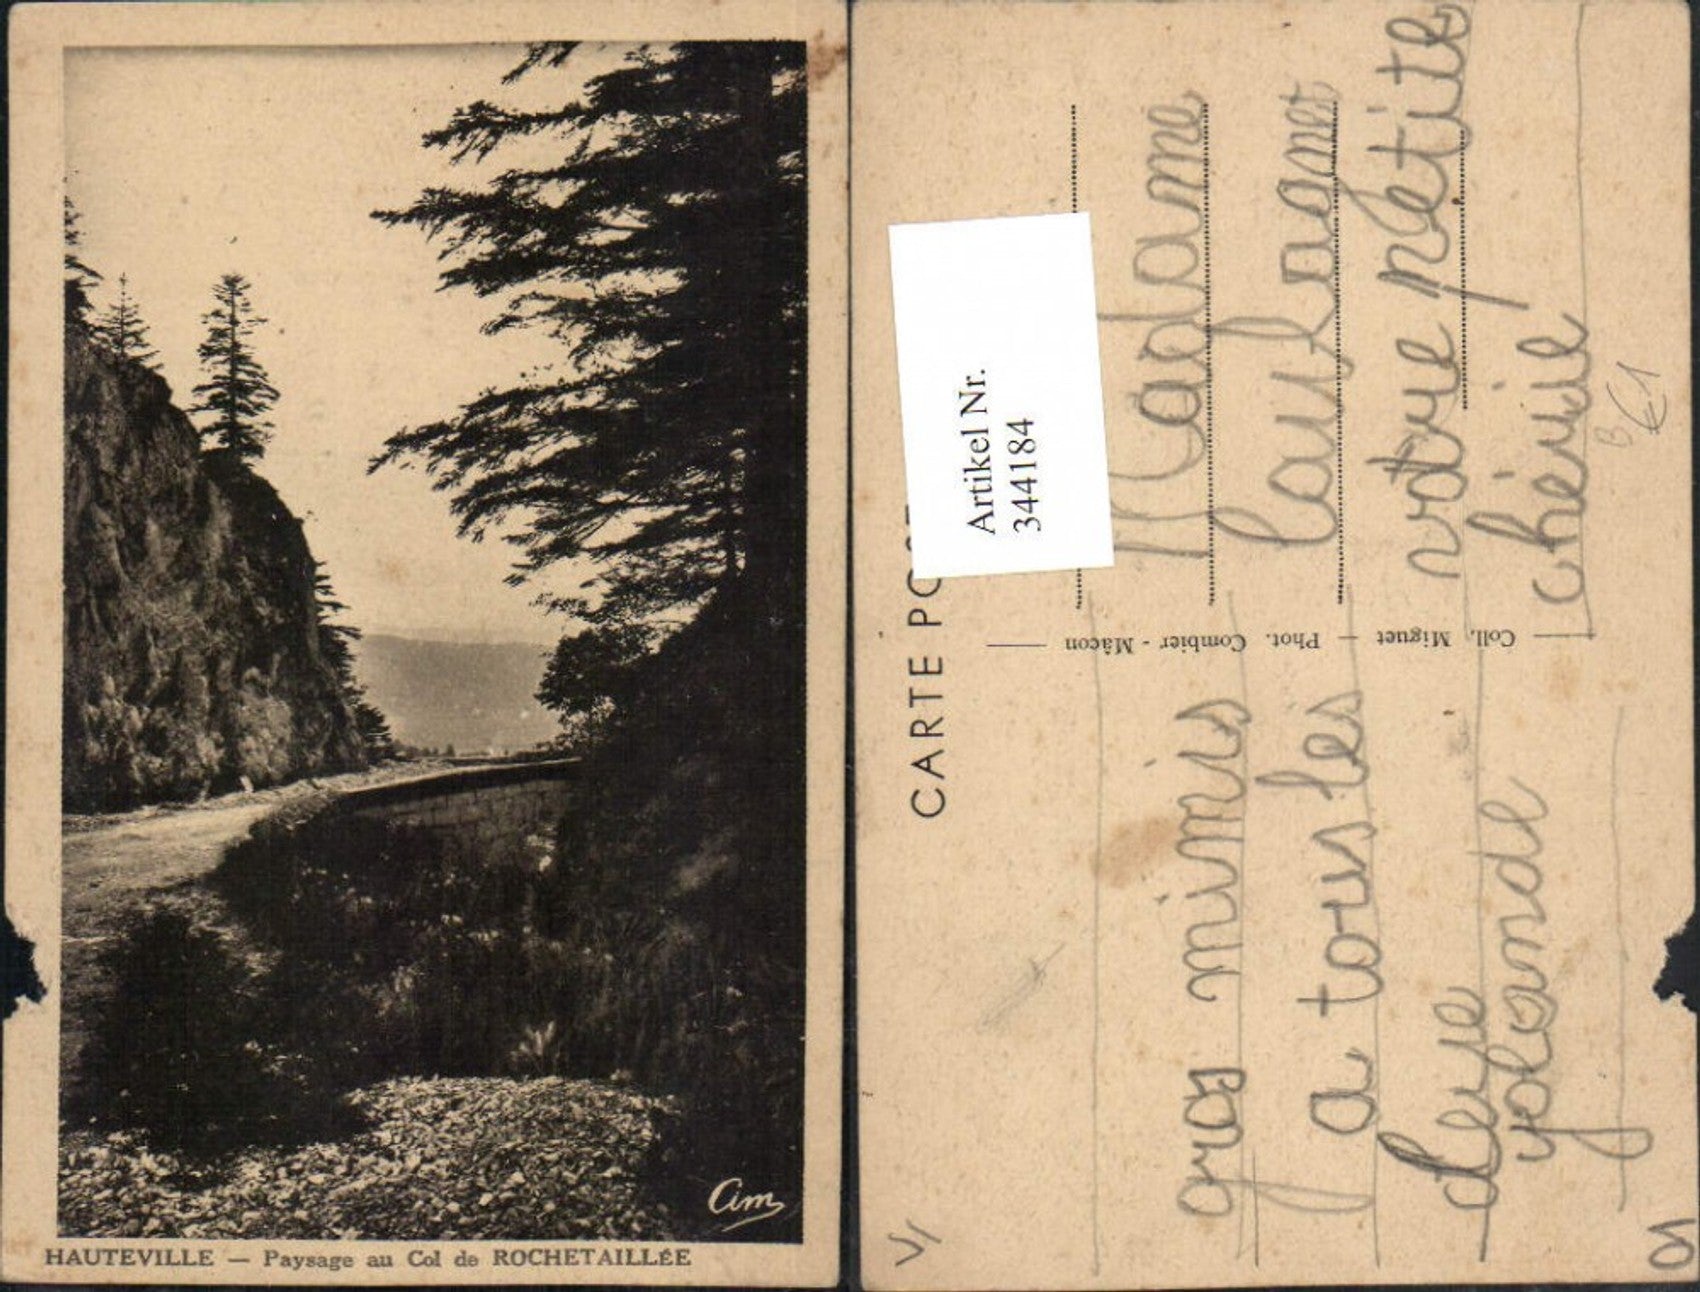 Cim
HAUTEVILLE — Paysage au Col de ROCHETAILLÉE
CARTE PO
Artikel Nr.
344184
Coll. Miguet — Phot. Combier - Mâcon
gros mimis
a tous les
deux
yolande
Madame
votre petite
chérie
€1